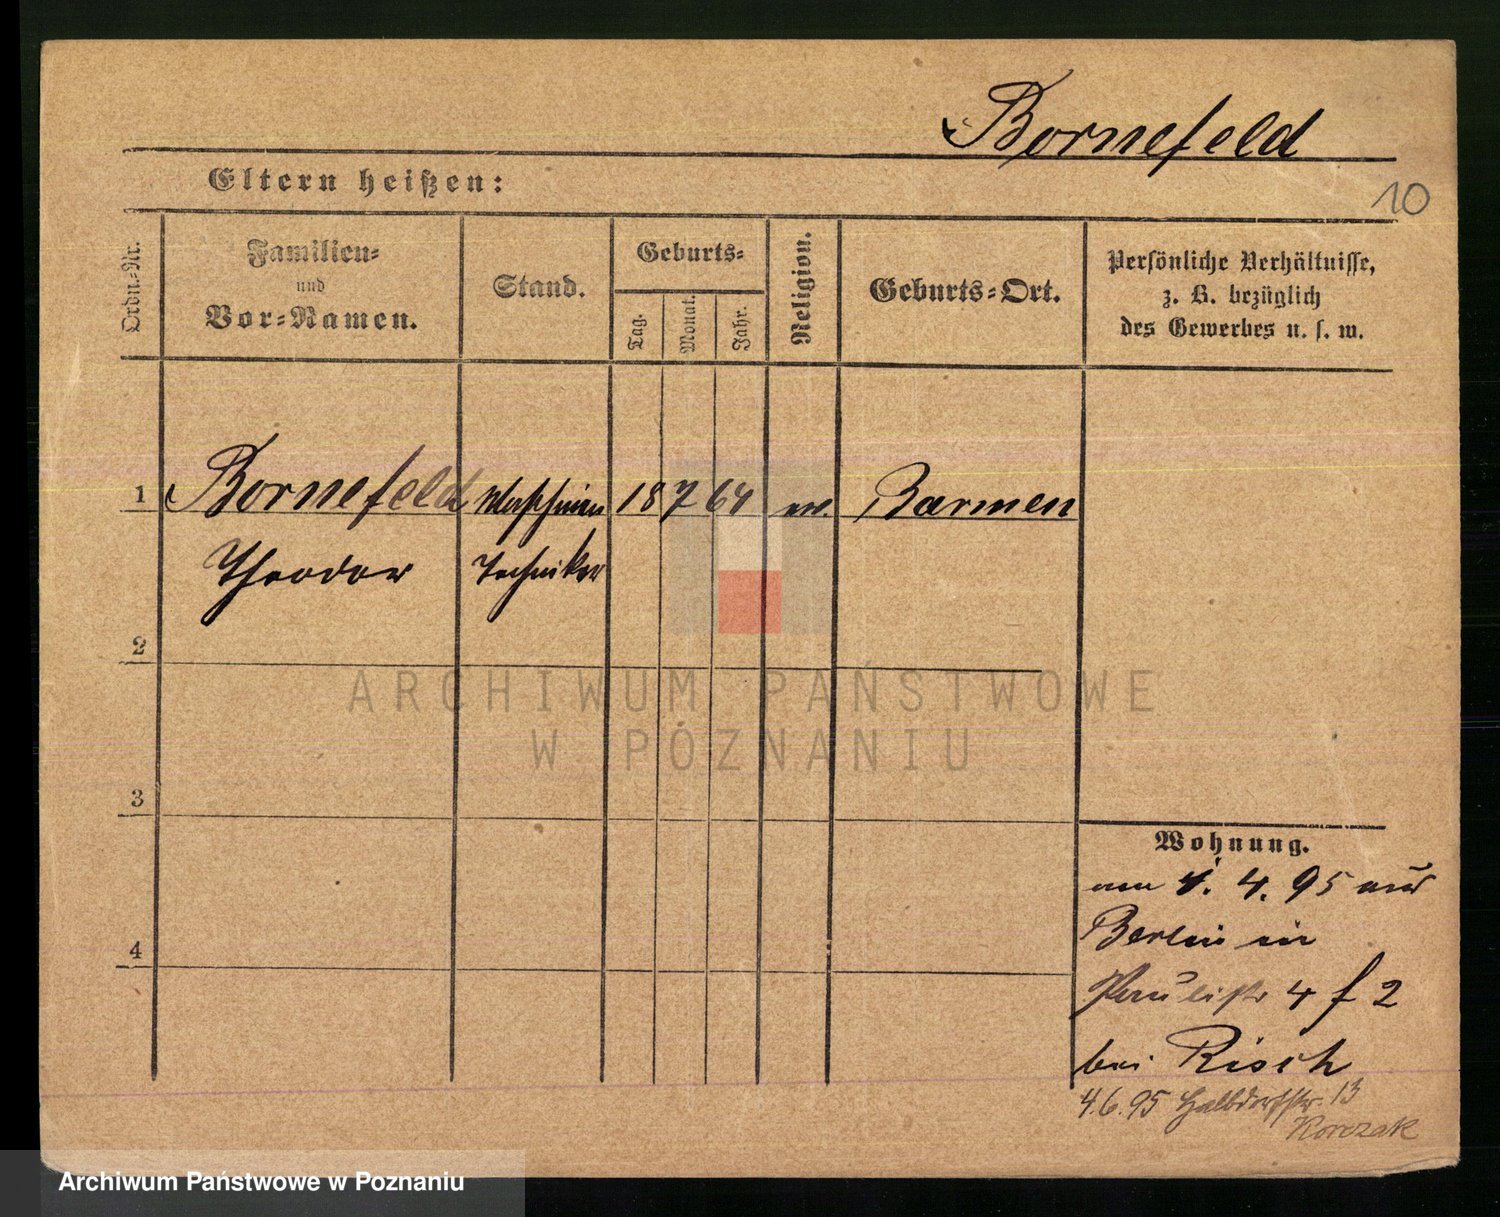 Bornefeld
Eltern heißen:
10
Ordn.-Nr.
Familien-
und
Vor-Namen.
Stand.
Geburts-
Tag.
Monat.
Jahr.
Religion.
Geburts-Ort.
Persönliche Verhältnisse,
z. B. bezüglich
des Gewerbes u. s. w.
1 Bornefeld Maschinen 18 7 64 ev. Barmen
Theodor Techniker
2
ARCHIWUM PAŃSTWOWE
W POZNANIU
3
Wohnung.
von 1. 4. 95 aus
Berlin in
Paulistr 4 f 2
4
bei Risch
4.6.95 Halbdorfstr. 13
Korczak
Archiwum Państwowe w Poznaniu